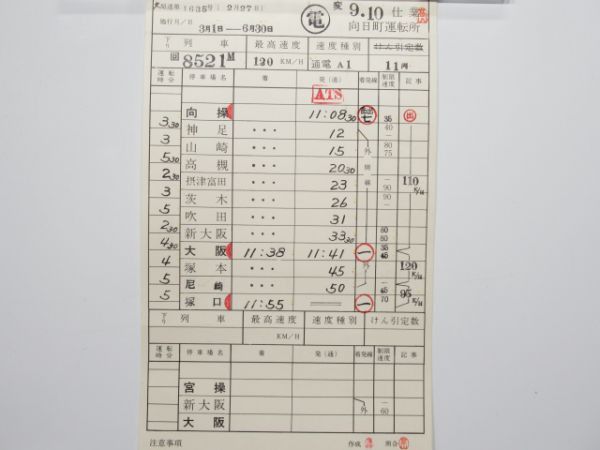 大鉄運第1635号(2月27日)
施行月/日 3月1日—6月30日
電 変 9.10 仕業
向日町運転所
下り 列車 最高速度 速度種別 けん引定数
回8521M 120 KM/H 通電A1 11両
運転時分 停車場名 着 発(通) 着発線 制限速度 記事
ATS
向操 11:08 30 七 35 出
3 30 神足 ・・・ 12 40
3 山崎 ・・・ 15 外 80 75
5 30 高槻 ・・・ 20 30
2 30 摂津富田 ・・・ 23 90 110 K/H
3 茨木 ・・・ 26 90
5 吹田 ・・・ 31
2 30 新大阪 ・・・ 33 30 60
4 30 大阪 11:38 11:41 一 35
4 塚本 ・・・ 45 外 120 K/H
5 尼崎 ・・・ 50
5 塚口 11:55 一 70 95 K/H
下り 列車 最高速度 速度種別 けん引定数
KM/H
運転時分 停車場名 着 発(通) 着発線 制限速度 記事
宮操
新大阪 外 60
大阪
注意事項 作成 照合